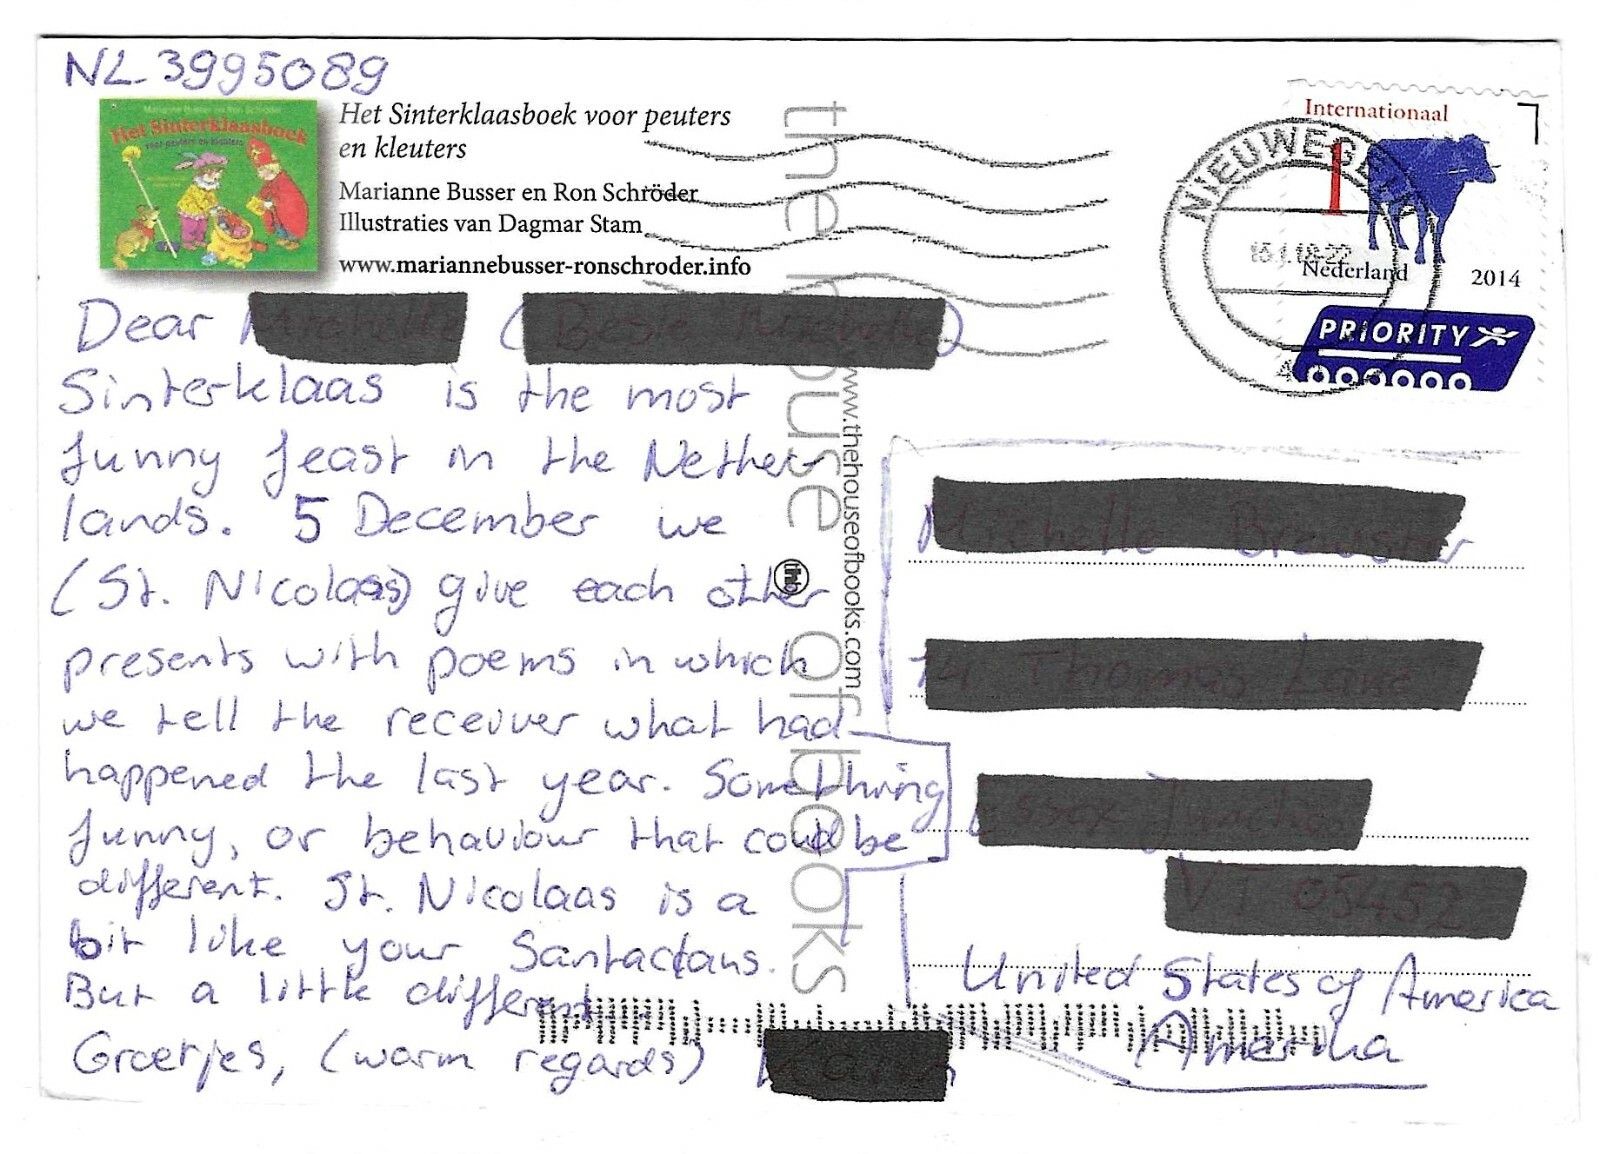 NL-3995089
Marianne Busser en Ron Schröder
Het Sinterklaasboek
voor peuters en kleuters
Het Sinterklaasboek voor peuters
en kleuters
Marianne Busser en Ron Schröder
Illustraties van Dagmar Stam
www.mariannebusser-ronschroder.info
the house of books
www.thehouseofbooks.com
thb
Internationaal
1
NIEUWEG
Nederland
2014
PRIORITY
Dear ( )
Sinterklaas is the most
funny feast in the Nether-
lands. 5 December we
(St. Nicolaas) give each other
presents with poems in which
we tell the receiver what had
happened the last year. Something
funny, or behaviour that could be
different. St. Nicolaas is a
bit like your Santaclaus.
But a little different
Groetjes, (warm regards)
United States of America
Amerika